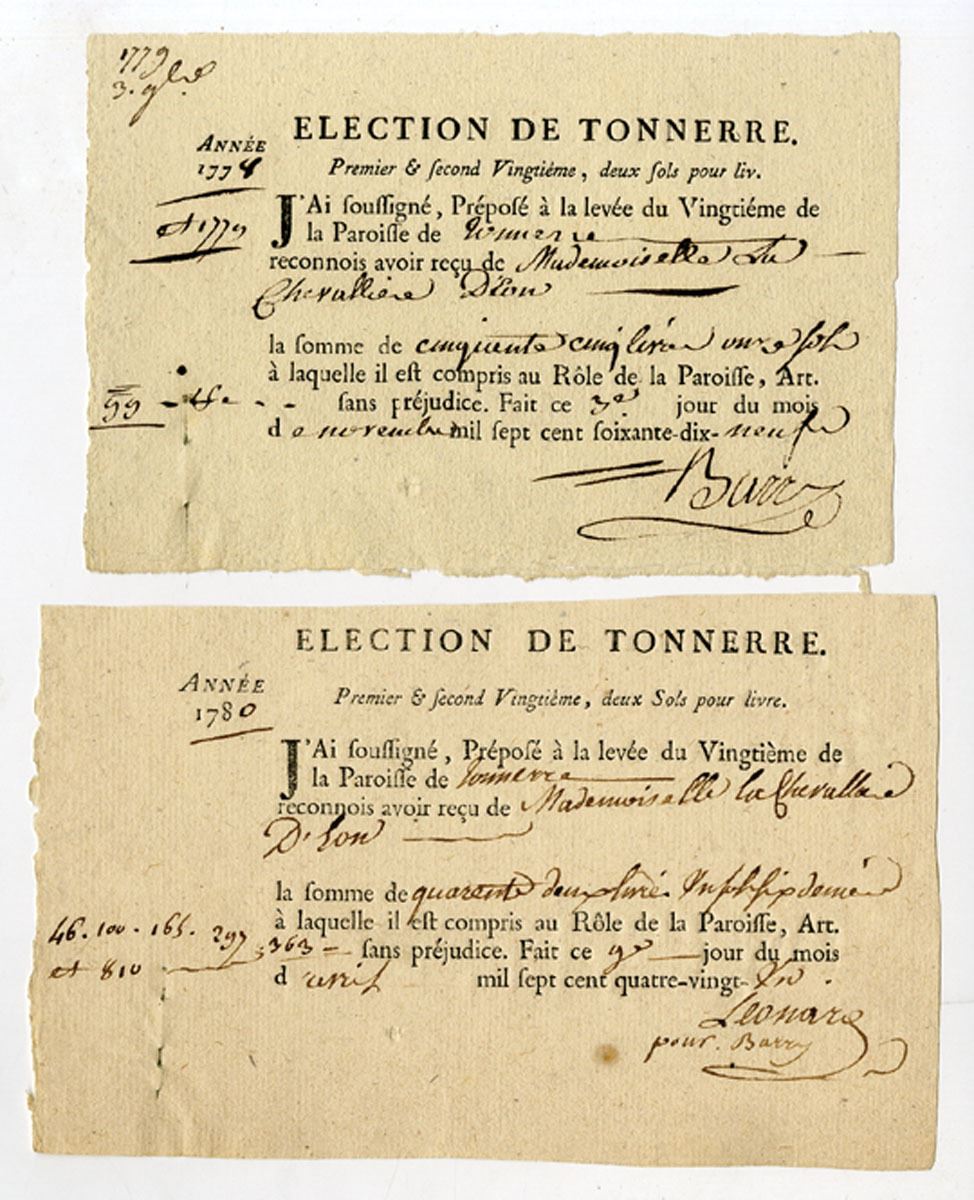 1779
3. 9bre
ELECTION DE TONNERRE.
ANNÉE
1778
et 1779
Premier & second Vingtiéme, deux sols pour liv.
J'Ai soussigné, Préposé à la levée du Vingtiéme de
la Paroisse de tonnerre
reconnois avoir reçu de Mademoiselle La
Chevalliere D'Eon
la somme de cinquente cinq livres onze sols
à laquelle il est compris au Rôle de la Paroisse, Art.
sans préjudice. Fait ce 3e jour du mois
de novembre mil sept cent soixante-dix-neufe
Barry
ELECTION DE TONNERRE.
ANNÉE
1780
Premier & second Vingtiême, deux Sols pour livre.
J'Ai soussigné, Préposé à la levée du Vingtième de
la Paroisse de tonnerre
reconnois avoir reçu de Mademoiselle la Chevalliere
D'Eon
la somme de quarente deux livre Un sol six denié
à laquelle il est compris au Rôle de la Paroisse, Art.
46. 100. 165. 297 363 sans préjudice. Fait ce 9e jour du mois
et 810
d'avril mil sept cent quatre-vingt-Un.
Leonard
pour Barry